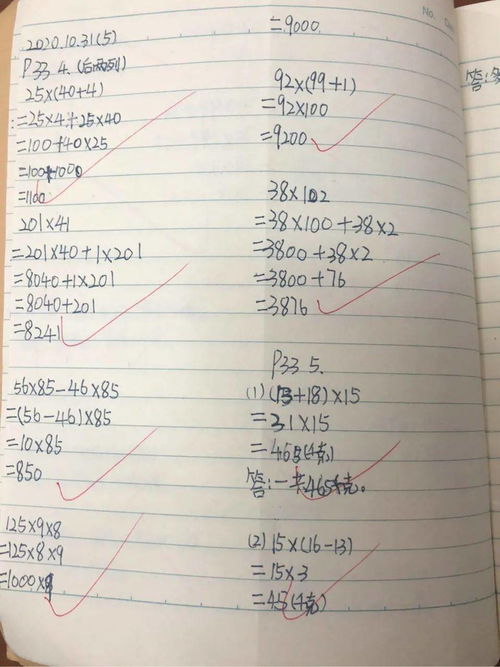 2020.10.31(5)
P33 4.(后两列)
25×(40+4)
=25×4+25×40
=100+40×25
=100+1000
=1100
201×41
=201×40+1×201
=8040+1×201
=8040+201
=8241
56×85-46×85
=(56-46)×85
=10×85
=850
125×9×8
=125×8×9
=1000×9
=9000.
92×(99+1)
=92×100
=9200
38×102
=38×100+38×2
=3800+38×2
=3800+76
=3876
P33 5.
(1)(13+18)×15
=31×15
=465(千克)
答:一共465千克。
(2)15×(16-13)
=15×3
=45(千克)
No.
答: